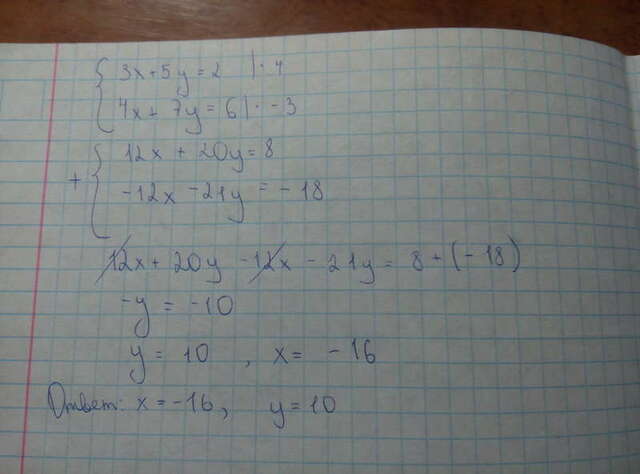 3x+5y=2 |·4
4x+7y=6|·-3
12x+20y=8
+
-12x-21y=-18
12x+20y-12x-21y=8+(-18)
-y=-10
y=10, x=-16
Ответ: x=-16, y=10